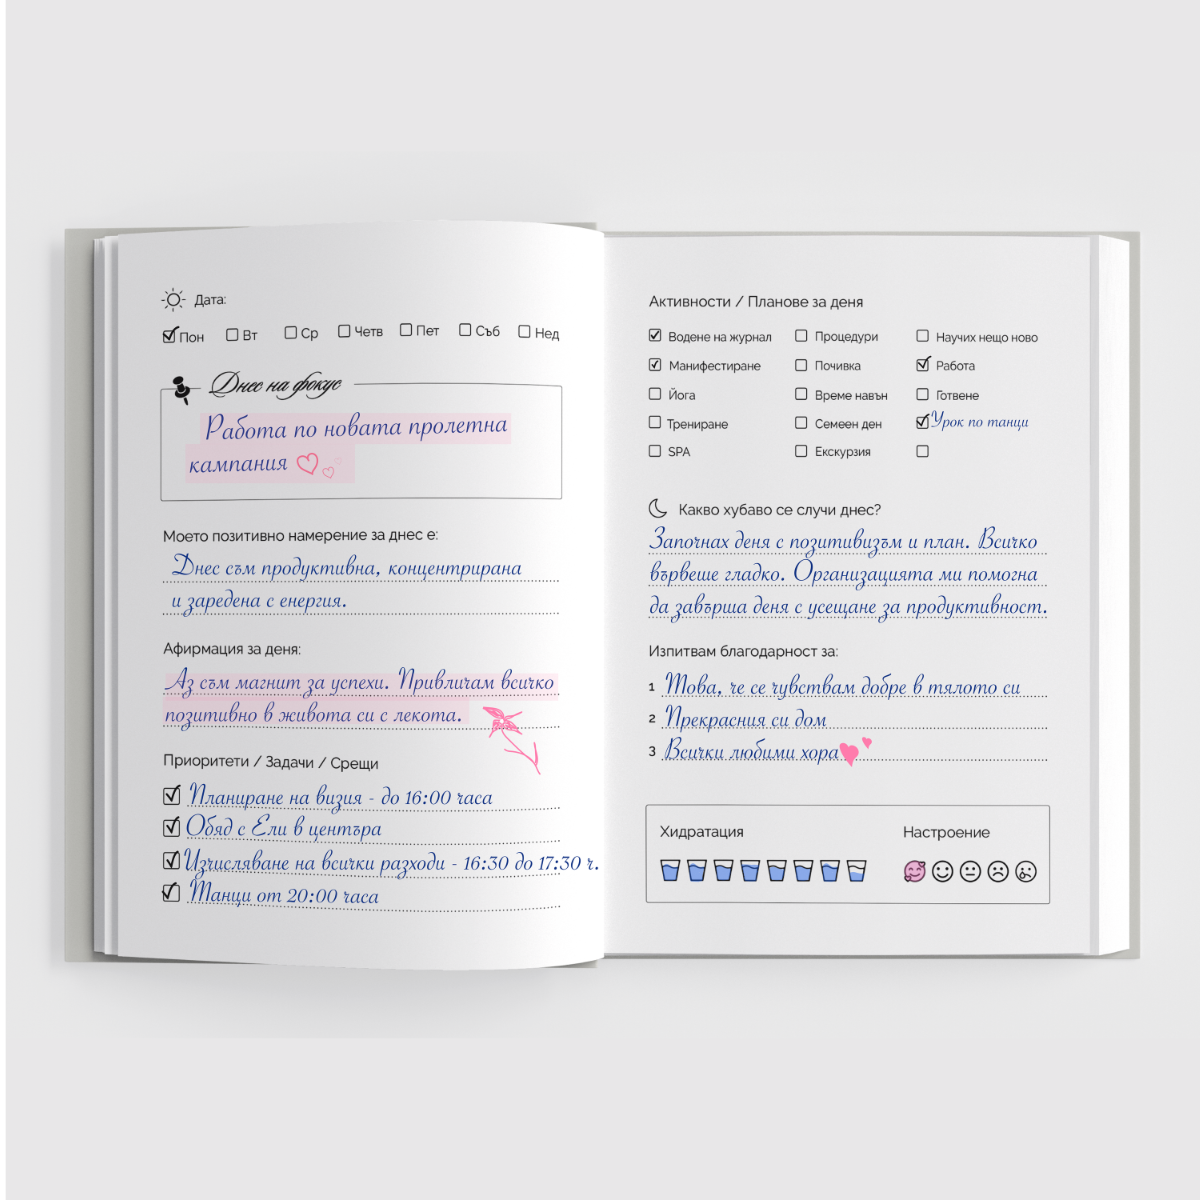 Дата:
Пон Вт Ср Четв Пет Съб Нед
Днес на фокус
Работа по новата пролетна
кампания
Моето позитивно намерение за днес е:
Днес съм продуктивна, концентрирана
и заредена с енергия.
Афирмация за деня:
Аз съм магнит за успехи. Привличам всичко
позитивно в живота си с лекота.
Приоритети / Задачи / Срещи
Планиране на визия - до 16:00 часа
Обяд с Ели в центъра
Изчисляване на всички разходи - 16:30 до 17:30 ч.
Танци от 20:00 часа
Активности / Планове за деня
Водене на журнал Процедури Научих нещо ново
Манифестиране Почивка Работа
Йога Време навън Готвене
Трениране Семеен ден Урок по танци
SPA Екскурзия
Какво хубаво се случи днес?
Започнах деня с позитивизъм и план. Всичко
вървеше гладко. Организацията ми помогна
да завърша деня с усещане за продуктивност.
Изпитвам благодарност за:
1 Това, че се чувствам добре в тялото си
2 Прекрасния си дом
3 Всички любими хора
Хидратация Настроение